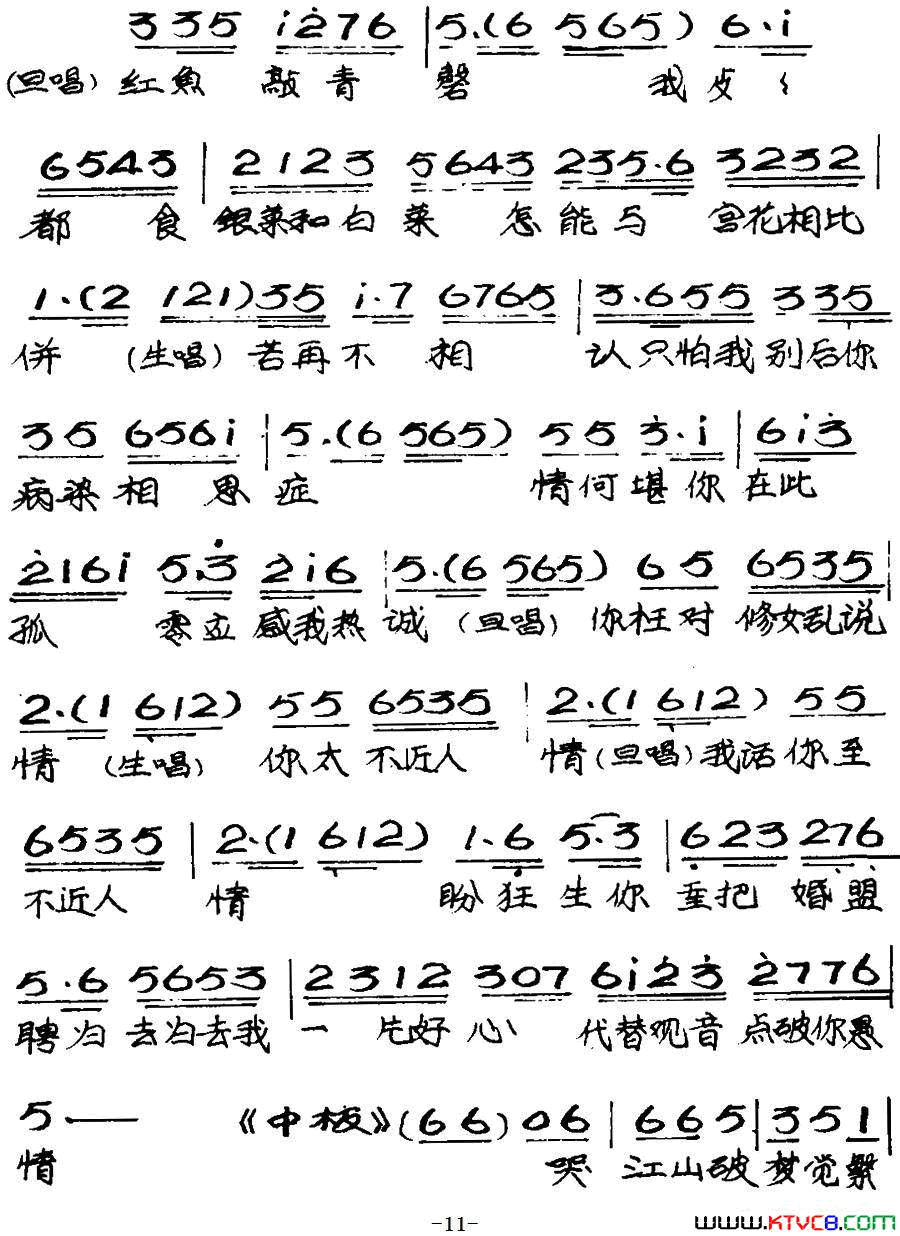 3 3 5 i 2 7 6 | 5.(6 5 6 5) 6.i
(旦唱) 红魚 敲青 磬 我歺〻
6 5 4 3 | 2 1 2 3 5 6 4 3 2 3 5.6 3 2 3 2 |
都 食 銀菜和白菜 怎能与 宫花相比
1.(2 1 2 1) 3 5 i.7 6 7 6 5 | 3.6 5 5 3 3 5
併 (生唱) 若再不相 认只怕我别后你
3 5 6 5 6 i | 5.(6 5 6 5) 5 5 3.i | 6 i 3
病染相 思 症 情何堪你在此
2 1 6 i 5.3 2 i 6 | 5.(6 5 6 5) 6 5 6 5 3 5 |
孤 零立感我热 诚 (旦唱) 你枉对 修女乱说
2.(1 6 1 2) 5 5 6 5 3 5 | 2.(1 6 1 2) 5 5
情 (生唱) 你太不近人 情 (旦唱) 我话你至
6 5 3 5 | 2.(1 6 1 2) 1.6 5.3 | 6 2 3 2 7 6
不近人 情 盼狂生你 重把 婚盟
5.6 5 6 5 3 | 2 3 1 2 3 0 7 6 i 2 3 2 7 7 6 |
聘归去归去我 一 片好心 代替观音 点破你愚
5 —— 《中板》(6 6) 0 6 | 6 6 5 | 3 5 1 |
情 哭 江山破 梦觉繁
-11-
www.KTVC8.com